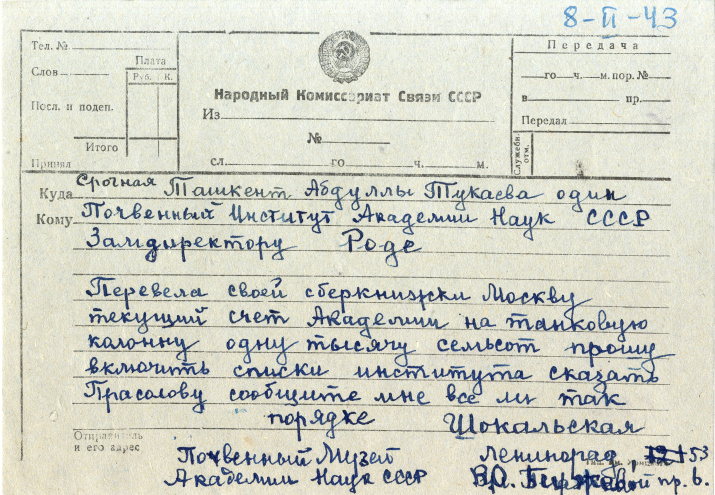 8-II-43
Тел. №
Слов
Посл. и подеп.
Плата
Руб. К.
Итого
Принял
Народный Комиссариат Связи СССР
Из
№
сл. го ч. м.
Передача
го ч. м. пор. №
в пр.
Передал
Служебн. отм.
Куда Срочная Ташкент Абдуллы Тукаева один
Кому Почвенный Институт Академии Наук СССР
Замдиректору Роде
Перевела своей сберкнижки Москву
текущий счет Академии на танковую
колонну одну тысячу семьсот прошу
включить списки института сказать
Прасолову сообщите мне все ли так
порядке Шокальская
Отправитель
и его адрес
Почвенный Музей Ленинград 53
Академии Наук СССР В.О. Биржевой пр. 6.